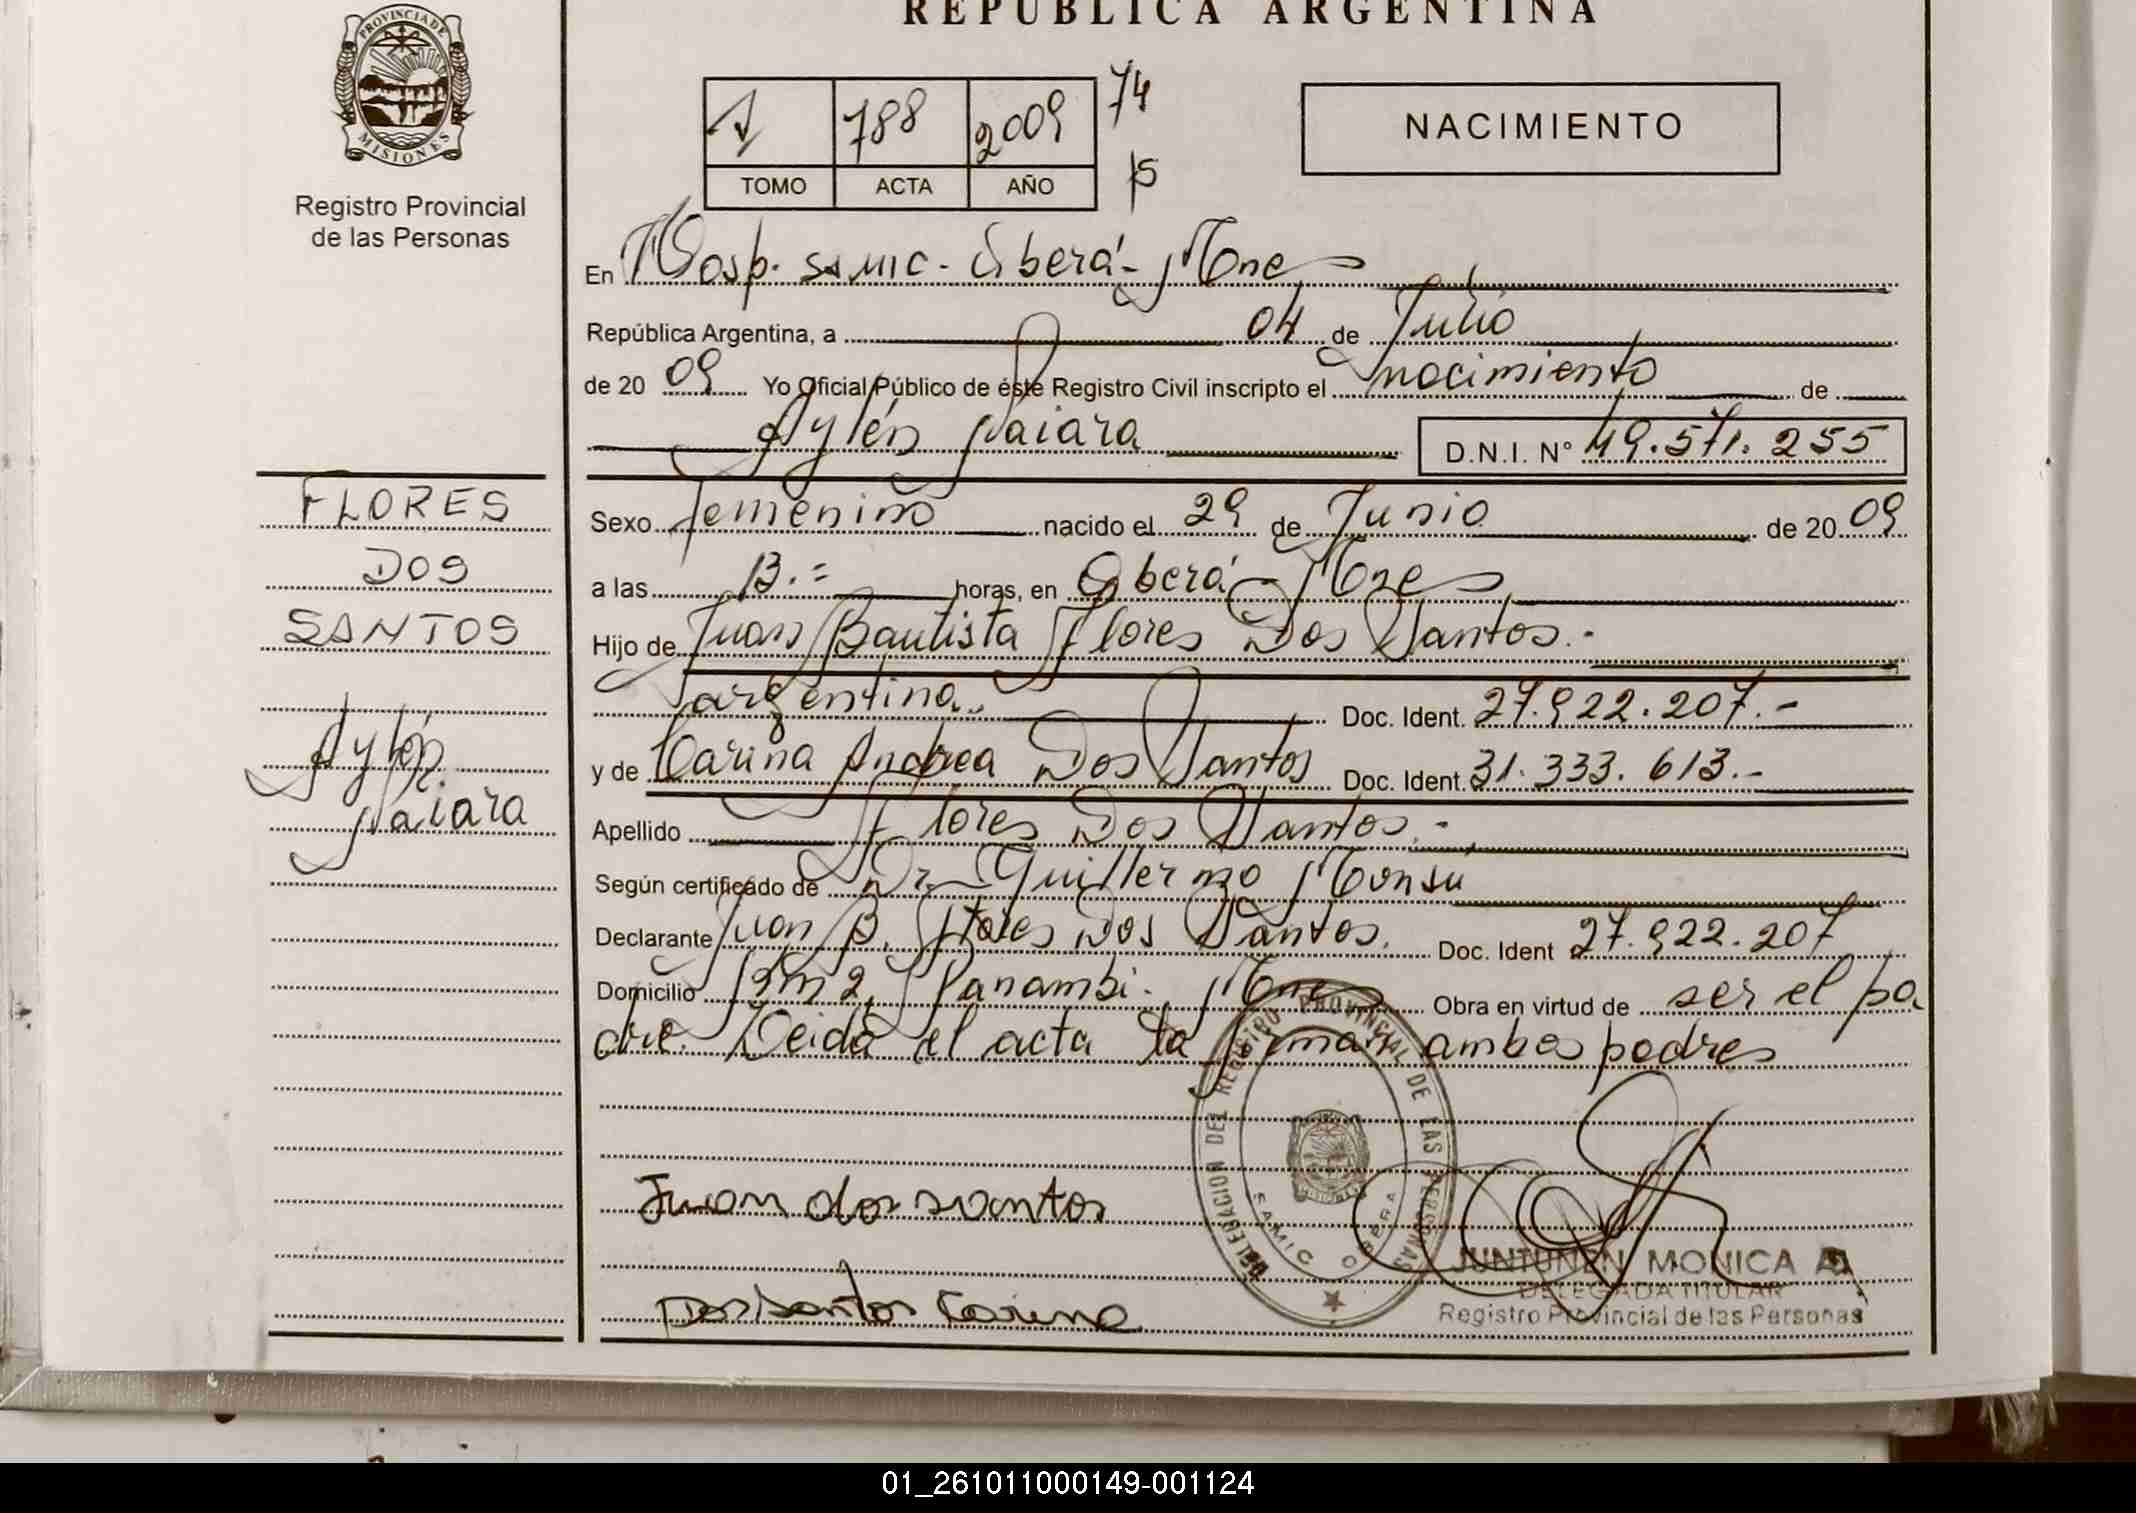 REPÚBLICA ARGENTINA
PROVINCIA DE
MISIONES
Registro Provincial
de las Personas
1 788 2009 74
TOMO ACTA AÑO 75
NACIMIENTO
En Hosp. SAMIC - Oberá - Mnes
República Argentina, a 04 de Julio
de 20 09 Yo Oficial Público de éste Registro Civil inscripto el nacimiento de
Aylén Naiara D.N.I. N° 49.571.255
FLORES
DOS
SANTOS
Aylén
Naiara
Sexo femenino nacido el 29 de Junio de 20 09
a las 13.= horas, en Oberá - Mnes
Hijo de Juan Bautista Flores Dos Santos.-
argentina.. Doc. Ident. 27.922.207.-
y de Carina Andrea Dos Santos Doc. Ident. 31.333.613.-
Apellido Flores Dos Santos.-
Según certificado de Dr. Guillermo
Declarante Juan B. Flores Dos Santos. Doc. Ident 27.922.207
Domicilio Km 2, Panambi - Mnes Obra en virtud de ser el pa
dre. Leida el acta la firman ambos padres
DELEGACION DEL REGISTRO PROVINCIAL DE LAS PERSONAS
SAMIC OBERA
Juan dos santos
Dos santos Carina
JUNTUNEN MONICA A.
DELEGADA TITULAR
Registro Provincial de las Personas
01_261011000149-001124